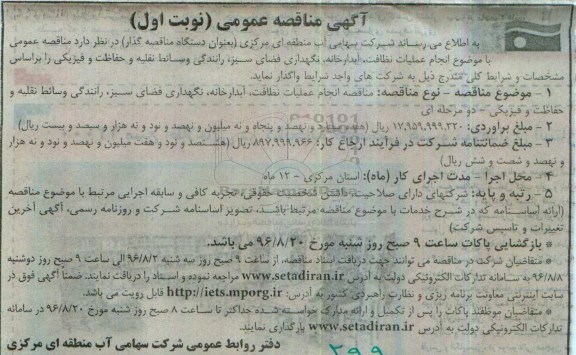 آگهی مناقصه عمومی (نوبت اول)
به اطلاع می رساند شرکت سهامی آب منطقه ای مرکزی (بعنوان دستگاه مناقصه گذار) در نظر دارد مناقصه عمومی
با موضوع انجام عملیات نظافت، آبدارخانه، نگهداری فضای سبز، رانندگی وسائط نقلیه و حفاظت و فیزیکی را براساس
مشخصات و شرایط کلی مندرج ذیل به شرکت های واجد شرایط واگذار نماید.
۱ - موضوع مناقصه - نوع مناقصه: مناقصه انجام عملیات نظافت، آبدارخانه، نگهداری فضای سبز، رانندگی وسائط نقلیه و
حفاظت و فیزیکی - دو مرحله ای
۲ - مبلغ برآوردی: ۱۷,۹۵۹,۹۹۹,۳۲۰ ریال (هفده میلیارد و نهصد و پنجاه و نه میلیون و نهصد و نود و نه هزار و سیصد و بیست ریال)
۳ - مبلغ ضمانتنامه شرکت در فرآیند ارجاع کار: ۸۹۷,۹۹۹,۹۶۶ ریال (هشتصد و نود و هفت میلیون و نهصد و نود و نه هزار
و نهصد و شصت و شش ریال)
۴ - محل اجرا - مدت اجرای کار (ماه): استان مرکزی - ۱۲ ماه
۵ - رتبه و پایه: شرکتهای دارای صلاحیت، داشتن شخصیت حقوقی، تجربه کافی و سابقه اجرایی مرتبط با موضوع مناقصه
(ارائه اساسنامه که در شرح خدمات با موضوع مناقصه مرتبط باشد، تصویر اساسنامه شرکت و روزنامه رسمی، آگهی آخرین
تغییرات و تاسیس شرکت)
* بازگشایی پاکات ساعت ۹ صبح روز شنبه مورخ ۹۶/۸/۲۰ می باشد.
* متقاضیان شرکت در مناقصه می توانند جهت دریافت اسناد مناقصه، از ساعت ۹ صبح روز سه شنبه ۹۶/۸/۲ الی ساعت ۹ صبح روز دوشنبه
۹۶/۸/۸ به سامانه تدارکات الکترونیکی دولت به آدرس www.setadiran.ir مراجعه نموده و اسناد را دریافت نمایند. ضمناً آگهی فوق در
سایت اینترنتی معاونت برنامه ریزی و نظارت راهبردی کشور به آدرس: http://iets.mporg.ir قابل رویت می باشد.
* متقاضیان موظفند پاکات را پس از تکمیل و ارائه مدارک خواسته شده حداکثر تا ساعت ۸ صبح روز شنبه مورخ ۹۶/۸/۲۰ در سامانه
تدارکات الکترونیکی دولت به آدرس www.setadiran.ir بارگذاری نمایند.
دفتر روابط عمومی شرکت سهامی آب منطقه ای مرکزی
۲۹۹